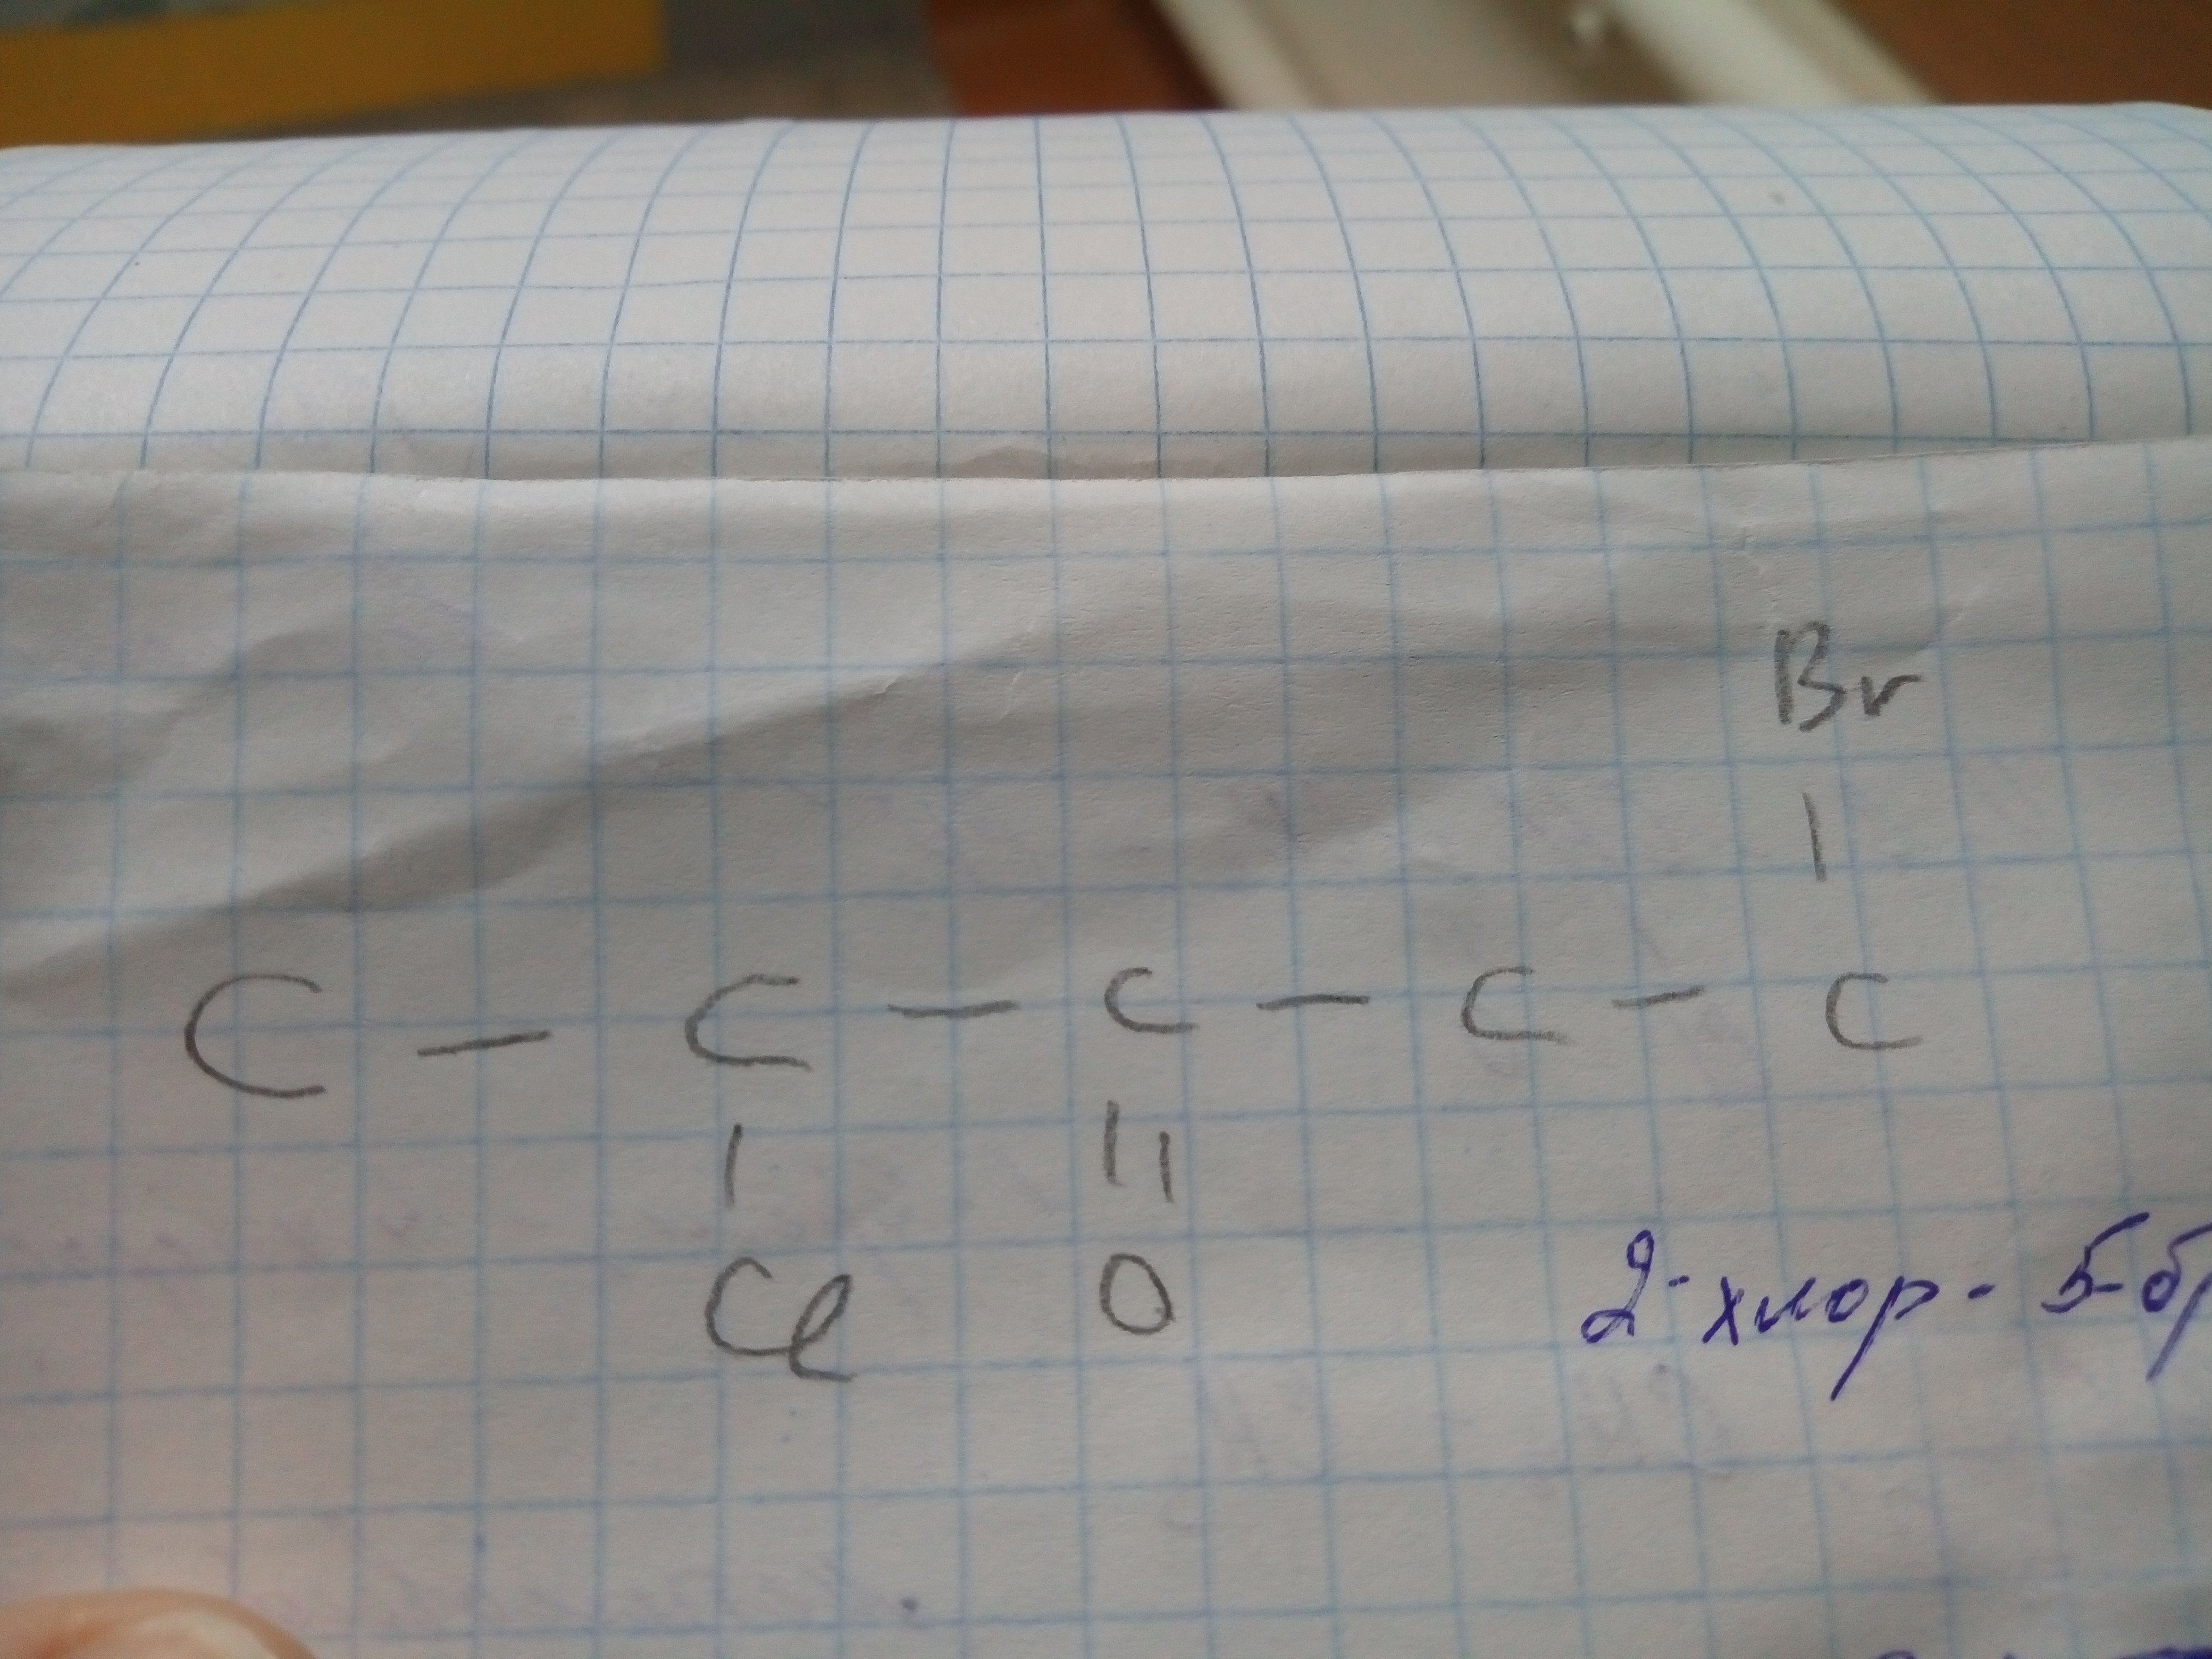 Br
|
C – C – C – C – C
| ||
Cl O
2-хлор-5-б